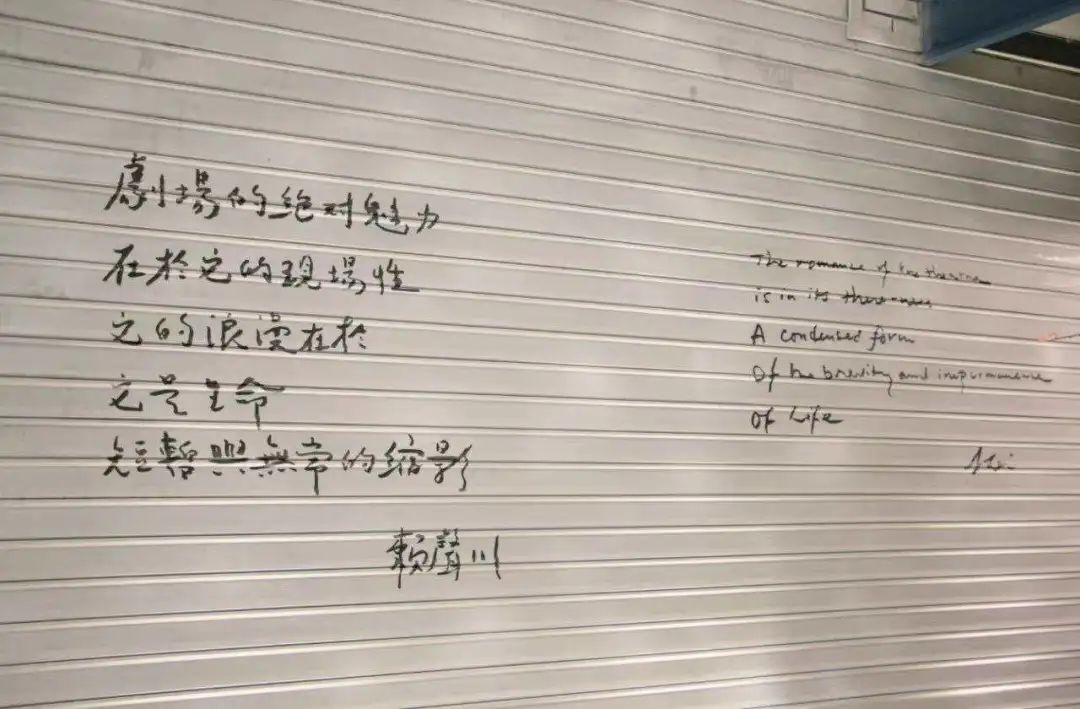 劇場的絕对魅力
在於它的現場性
它的浪漫在於
它是生命
短暫與無常的縮影
賴聲川
The romance of the theatre
is in its there-ness
A condensed form
Of the brevity and impermanence
Of Life